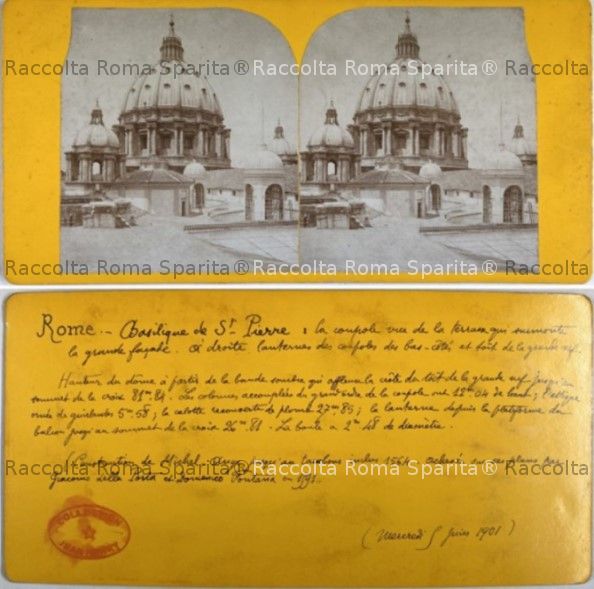 Raccolta Roma Sparita® Raccolta Roma Sparita® Raccolta Roma Sparita®
Raccolta Roma Sparita® Raccolta Roma Sparita® Raccolta Roma Sparita®
Rome. - Basilique de St Pierre : la coupole vue de la terrasse qui surmonte
la grande façade. à droite lanternes des coupoles des bas-côtés et toit de la grande nef.
Hauteur du dôme à partir de la bande sombre qui la crête du toit de la grande nef jusqu'au
sommet de la croix 81m.84. Les colonnes accouplées du grand de la coupole ont de haut; l'attique
ornée de guirlandes 5m.58; la calotte recouverte de plomb 27m.85; la lanterne depuis la plateforme du
balcon jusqu'au sommet de la croix 26m.81. La boule a 2m.48 de diamètre.
Raccolta Roma Sparita® Raccolta Roma Sparita® Raccolta Roma Sparita®
(Construction de Michel Ange, jusqu'au tambour inclus 1564. Achevé sur ses plans par
Giacomo della Porta et Domenico Fontana en
Raccolta Roma Sparita® Raccolta Roma Sparita® Raccolta Roma Sparita®
COLLECTION
(Mercredi 5 Juin 1901)